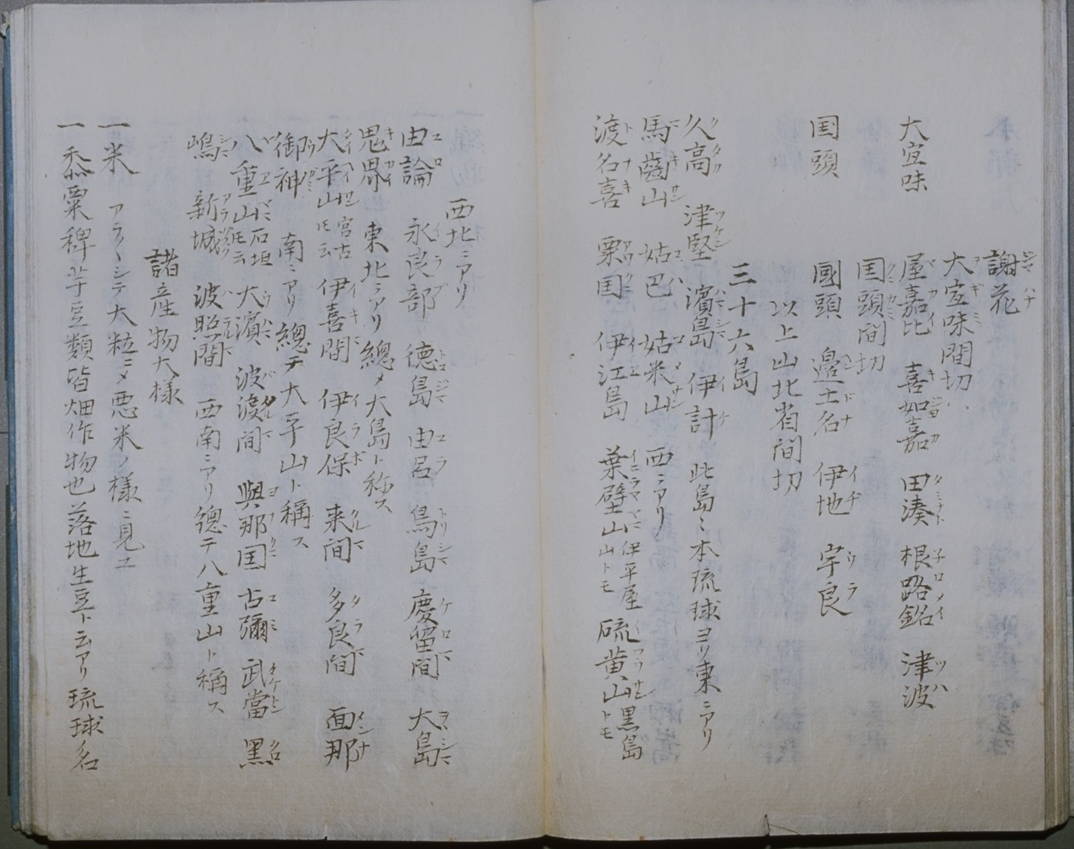 謝花
大宜味　大宜味間切
屋嘉比　喜如嘉　田湊　根路銘　津波
国頭　国頭間切
國頭　邊土名　伊地　宇良
以上山北省間切
三十六島
久高　津堅　濱島　伊計　此島ミ本琉球ヨリ東ニアリ
馬齒山　姑巴　姑米山　西ニアリ
渡名喜　粟国　伊江島　葉壁山伊平屋山トモ　硫黄山黒島トモ
西北ニアリ
由論　永良部　德島　由呂　鳥島　慶留間　大島
鬼界　東北ニアリ總メ大島ト称ス
大平山宮古氏云　伊喜間　伊良保　来間　多良間　面那
御神　南ニアリ總テ大平山ト稱ス
八重山石垣氏云　大濱　波渡間　與那国　古彌　武當　黒
嶋　新城　波照間　西南ニアリ總テ八重山ト稱ス
諸産物大様
一米　アラクシテ大粒ニメ悪米ノ様ニ見ユ
一黍粟稗芋豆類皆畑作物也落地生豆ト云アリ琉球名